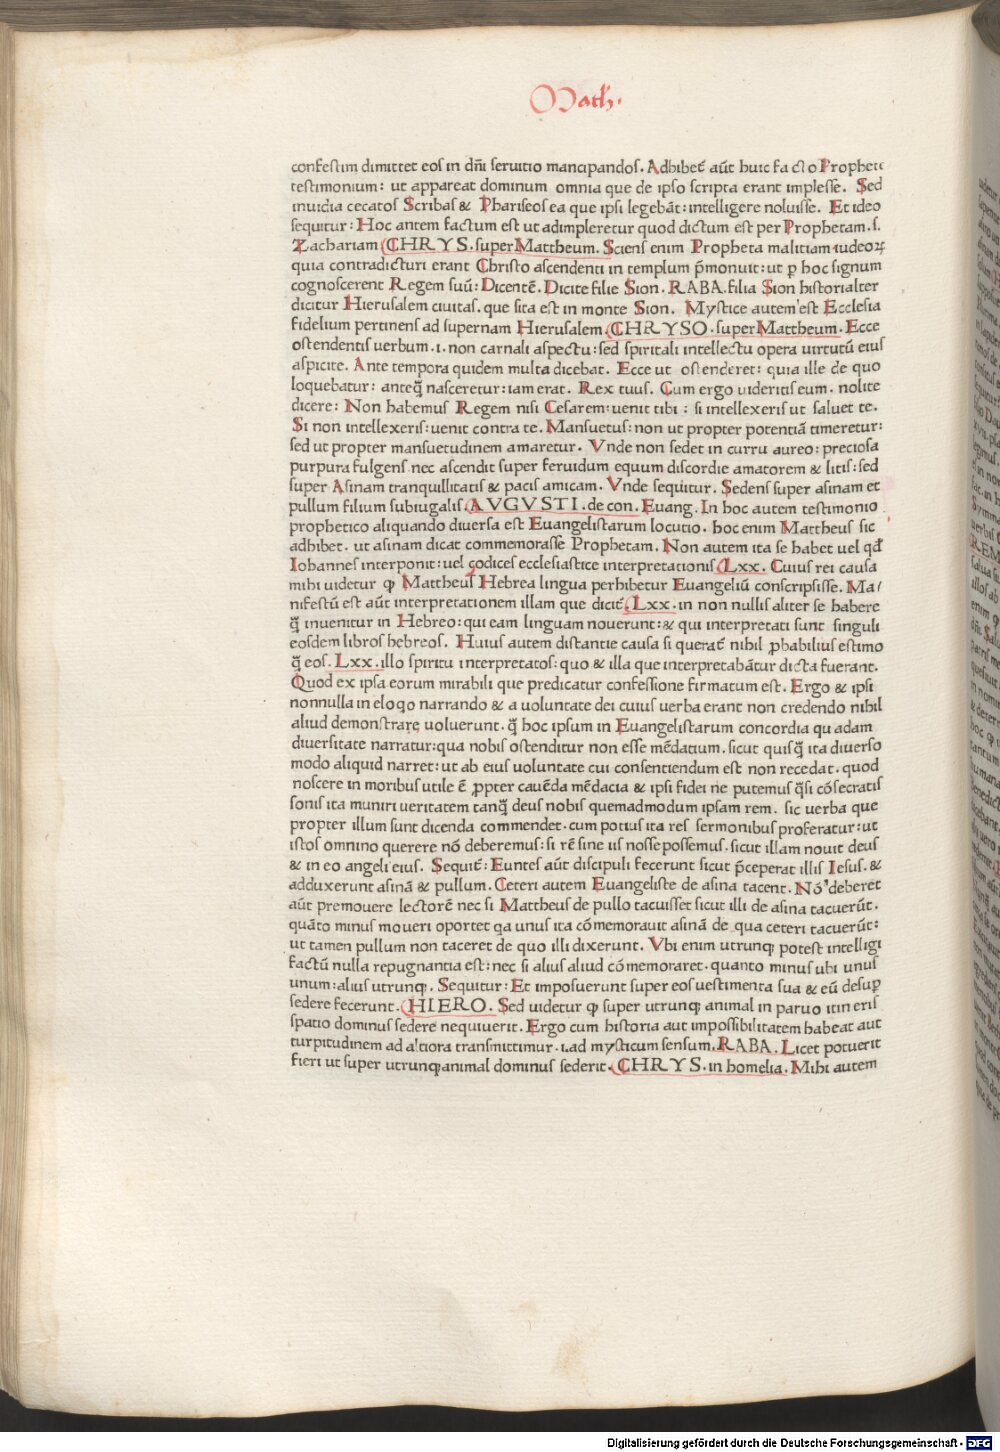 Math.
confestim dimittet eos in dñi seruitio mancipandos. Adhibet̃ aũt huic facto Prophetic
testimonium: ut appareat dominum omnia que de ipso scripta erant implesse. Sed
inuidia cecatos Scribas & Phariseos ea que ipsi legebãt: intelligere noluisse. Et ideo
sequitur: Hoc antem factum est ut adimpleretur quod dictum est per Prophetam. s.
Zachariam CHRYS. super Mattheum. Sciens enim Propheta malitiam iudeoꝝ
quia contradicturi erant Christo ascendenti in templum p̃monuit: ut ꝑ hoc signum
cognoscerent Regem suũ: Dicentẽ. Dicite filie Sion. RABA. filia Sion historialter
dicitur Hierusalem ciuitas. que sita est in monte Sion. Mystice autem est Ecclesia
fidelium pertinens ad supernam Hierusalem CHRYSO. super Mattheum. Ecce
ostendentis uerbum .i. non carnali aspectu: sed spiritali intellectu opera uirtutũ eius
aspicite. Ante tempora quidem multa dicebat. Ecce ut ostenderet: quia ille de quo
loquebatur: anteq̃ nasceretur: iam erat. Rex tuus. Cum ergo uideritis eum. nolite
dicere: Non habemus Regem nisi Cesarem: uenit tibi: si intellexeris ut saluet te.
Si non intellexeris: uenit contra te. Mansuetus: non ut propter potentiã timeretur:
sed ut propter mansuetudinem amaretur. Vnde non sedet in curru aureo: preciosa
purpura fulgens. nec ascendit super feruidum equum discordie amatorem & litis: sed
super Asinam tranquillitatis & pacis amicam. Vnde sequitur. Sedens super asinam et
pullum filium subiugalis AVGVSTI. de con. Euang. In hoc autem testimonio
prophetico aliquando diuersa est Euangelistarum locutio. hoc enim Mattheus sic
adhibet. ut asinam dicat commemorasse Prophetam. Non autem ita se habet uel qđ
Iohannes interponit: uel codices ecclesiastice interpretationis Lxx. Cuius rei causa
mihi uidetur ꝙ Mattheus Hebrea lingua perhibetur Euangeliũ conscripsisse. Ma/
nifestũ est aũt interpretationem illam que dicit̃ Lxx. in non nullis aliter se habere
q̃ inuenitur in Hebreo: qui eam linguam nouerunt: & qui interpretati sunt singuli
eosdem libros hebreos. Huius autem distantie causa si querat̃ nihil ꝓbabilius estimo
q̃ eos. Lxx. illo spiritu interpretatos: quo & illa que interpretabãtur dicta fuerant.
Quod ex ipsa eorum mirabili que predicatur confessione firmatum est. Ergo & ipsi
nonnulla in eloqo narrando & a uoluntate dei cuius uerba erant non credendo nihil
aliud demonstrare uoluerunt. q̃ hoc ipsum in Euangelistarum concordia qu adam
diuersitate narratur: qua nobis ostenditur non esse mẽdatium. sicut quisq̃ ita diuerso
modo aliquid narret: ut ab eius uoluntate cui consentiendum est non recedat. quod
noscere in moribus utile ẽ ꝓpter cauẽda mẽdacia & ipsi fidei ne putemus q̃si cõsecratis
sonis ita muniri ueritatem tanq̃ deus nobis quemadmodum ipsam rem. sic uerba que
propter illum sunt dicenda commendet. cum potius ita res sermonibus proferatur: ut
istos omnino querere nõ deberemus: si rẽ sine iis nosse possemus. sicut illam nouit deus
& in eo angeli eius. Sequit̃: Euntes aũt discipuli fecerunt sicut p̃ceperat illis Iesus. &
adduxerunt asinã & pullum. Ceteri autem Euangeliste de asina tacent. Nõ deberet
aũt premouere lectorẽ nec si Mattheus de pullo tacuisset sicut illi de asina tacuerũt.
quãto minus moueri oportet qa unus ita cõmemorauit asinã de qua ceteri tacuerũt:
ut tamen pullum non taceret de quo illi dixerunt. Vbi enim utrunq; potest intelligi
factũ nulla repugnantia est: nec si alius aliud cõmemoraret. quanto minus ubi unus
unum: alius utrunq;. Sequitur: Et imposuerunt super eos uestimenta sua & eũ desuꝑ
sedere fecerunt. HIERO. Sed uidetur ꝙ super utrunq; animal in paruo itineris
spatio dominus sedere nequiuerit. Ergo cum historia aut impossibilitatem habeat aut
turpitudinem ad altiora transmittimur .i. ad mysticum sensum. RABA. Licet potuerit
fieri ut super utrunq; animal dominus sederit. CHRYS. in homelia. Mihi autem
Digitalisierung gefördert durch die Deutsche Forschungsgemeinschaft - DFG